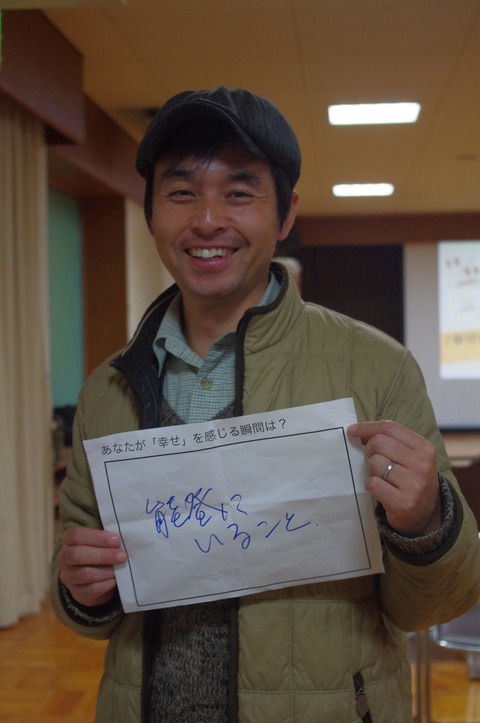 あなたが「幸せ」を感じる瞬間は？
能登に
いること.